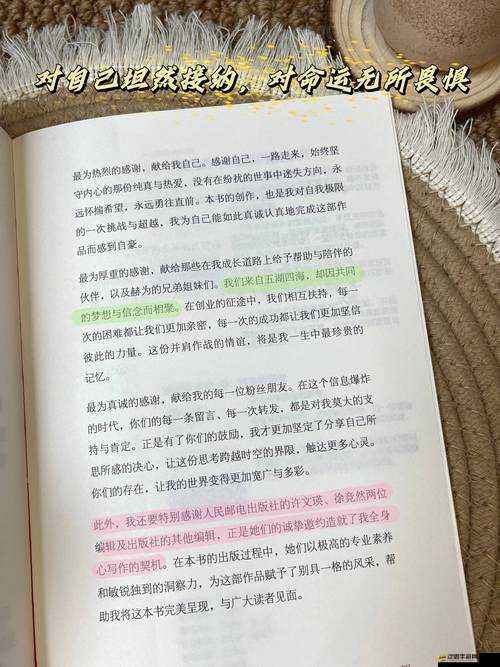 对自己坦然接纳，对命运无所畏惧
最为热烈的感谢，献给我自己。感谢自己，一路走来，始终坚
守内心的那份纯真与热爱，没有在纷扰的世事中迷失方向，永
远怀揣希望，永远勇往直前。本书的创作，也是我对自我极限
的一次挑战与超越，我为自己能如此真诚认真地完成这部作
品而感到自豪。
最为厚重的感谢，献给那些在我成长道路上给予帮助与陪伴的
伙伴，以及赫为的兄弟姐妹们。我们来自五湖四海，却因共同
的梦想与信念而相聚。在创业的征途中，我们相互扶持，每一
次的困难都让我们更加亲密，每一次的成功都让我们更加坚信
彼此的力量。这份并肩作战的情谊，将是我一生中最珍贵的
记忆。
最为真诚的感谢，献给我的每一位粉丝朋友。在这个信息爆炸
的时代，你们的每一条留言、每一次转发，都是对我莫大的支
持与肯定。正是有了你们的鼓励，我才更加坚定了分享自己所
思所感的决心，让这份思考跨越时空的界限，触达更多心灵。
你们的存在，让我的世界变得更加宽广与多彩。
此外，我还要特别感谢人民邮电出版社的许文瑛、徐竞然两位
编辑及出版社的其他编辑，正是她们的诚挚邀约造就了我全身
心写作的契机。在本书的出版过程中，她们以极高的专业素养
和敏锐独到的洞察力，为这部作品赋予了别具一格的风采，帮
助我将这本书完美呈现，与广大读者见面。